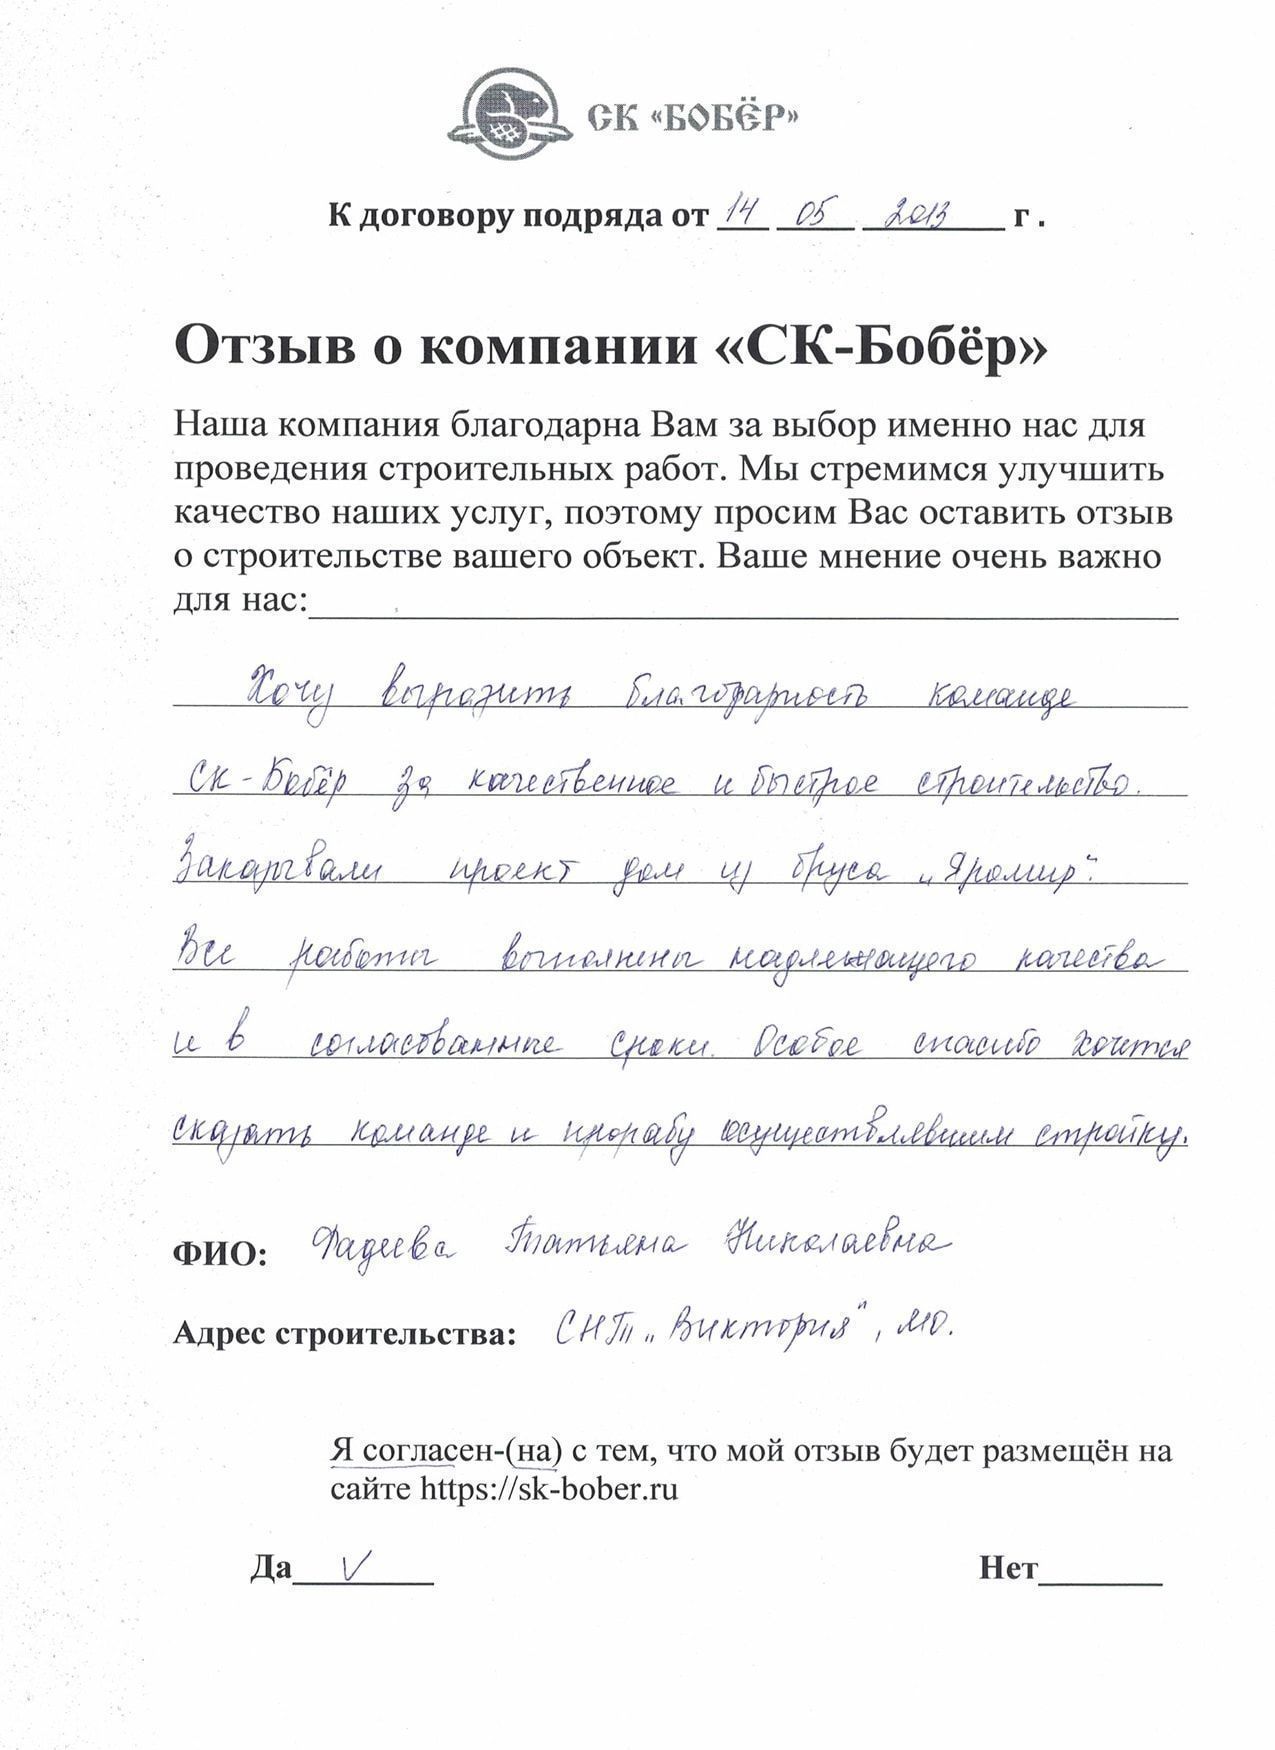 СК «БОБЁР»
К договору подряда от 14 05 2013 г .
Отзыв о компании «СК-Бобёр»
Наша компания благодарна Вам за выбор именно нас для
проведения строительных работ. Мы стремимся улучшить
качество наших услуг, поэтому просим Вас оставить отзыв
о строительстве вашего объект. Ваше мнение очень важно
для нас:
Хочу выразить благодарность команде
СК-Бобёр за качественное и быстрое строительство.
Заказывали проект дом из бруса „Яромир".
Все работы выполнены надлежащего качества
и в согласованные сроки. Особое спасибо хочется
сказать команде и прорабу осуществлявшим стройку.
ФИО: Фадеева Татьяна Николаевна
Адрес строительства: СНТ „Виктория", МО.
Я согласен-(на) с тем, что мой отзыв будет размещён на
сайте https://sk-bober.ru
Да V Нет